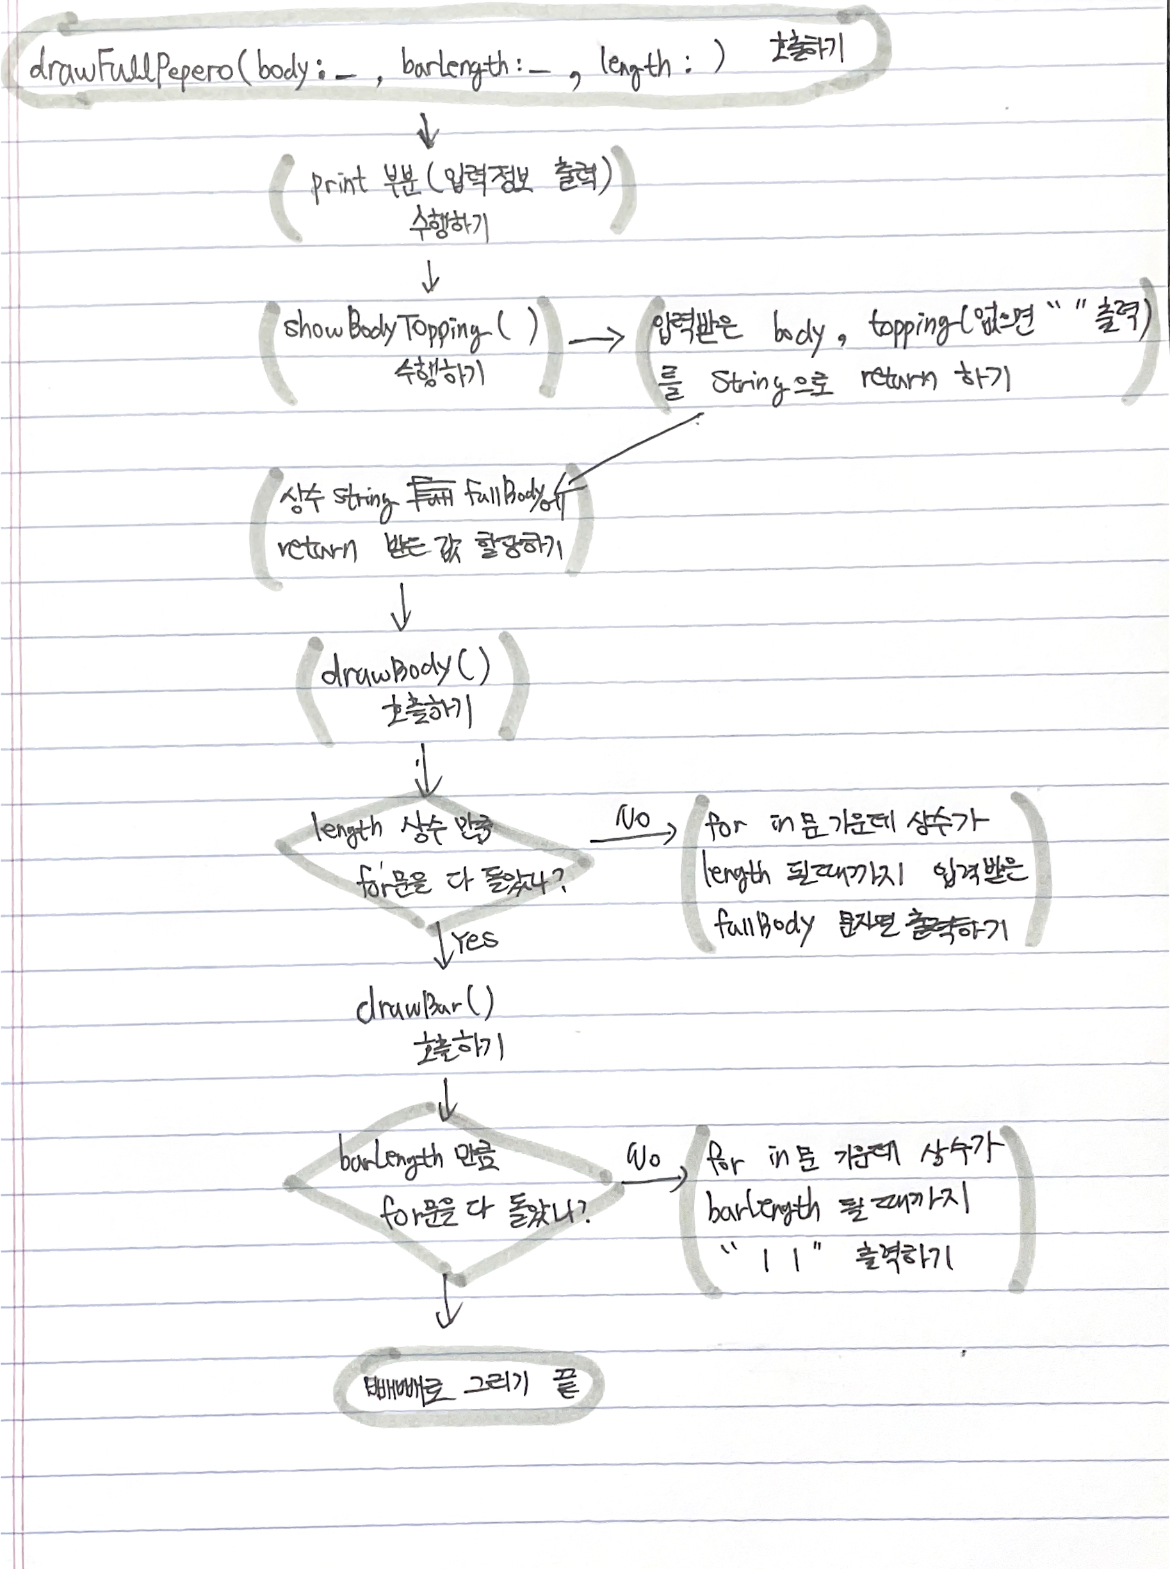 drawFullPepero(body:_ , barLength:_ , length: ) 호출하기
print 부분(입력정보 출력)
수행하기
showBodyTopping( )
수행하기
입력받은 body, topping(없으면 " " 출력)
를 String으로 return 하기
상수 string fullBody에
return 받은 값 할당하기
drawBody()
호출하기
length 상수 만큼
for문을 다 돌았나?
No
for in문 가운데 상수가
length 될때까지 입력받은
fullBody 출력하기
Yes
drawBar()
호출하기
barLength 만큼
for문을 다 돌았나?
No
for in문 가운데 상수가
barLength 될때까지
" | | " 출력하기
빼빼로 그리기 끝